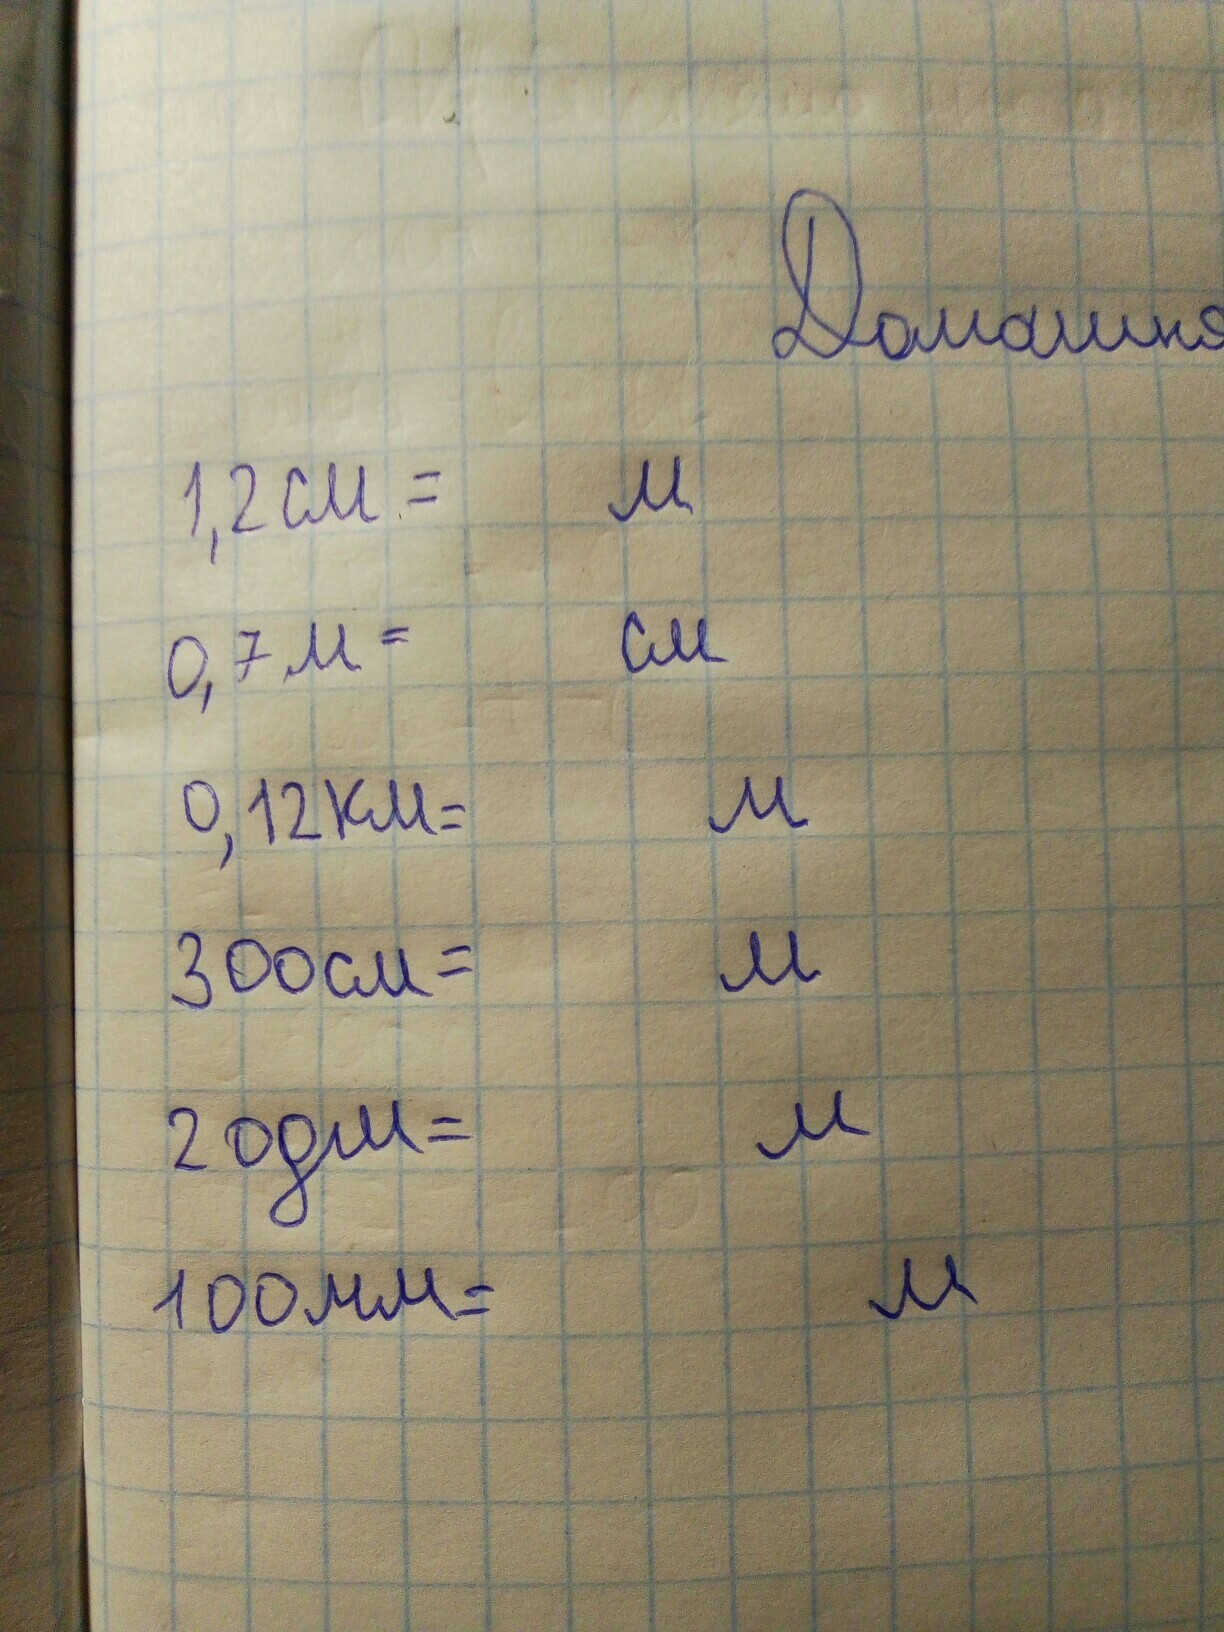 Домашня
1,2см= м
0,7м= см
0,12км= м
300см= м
20дм= м
100мм= м